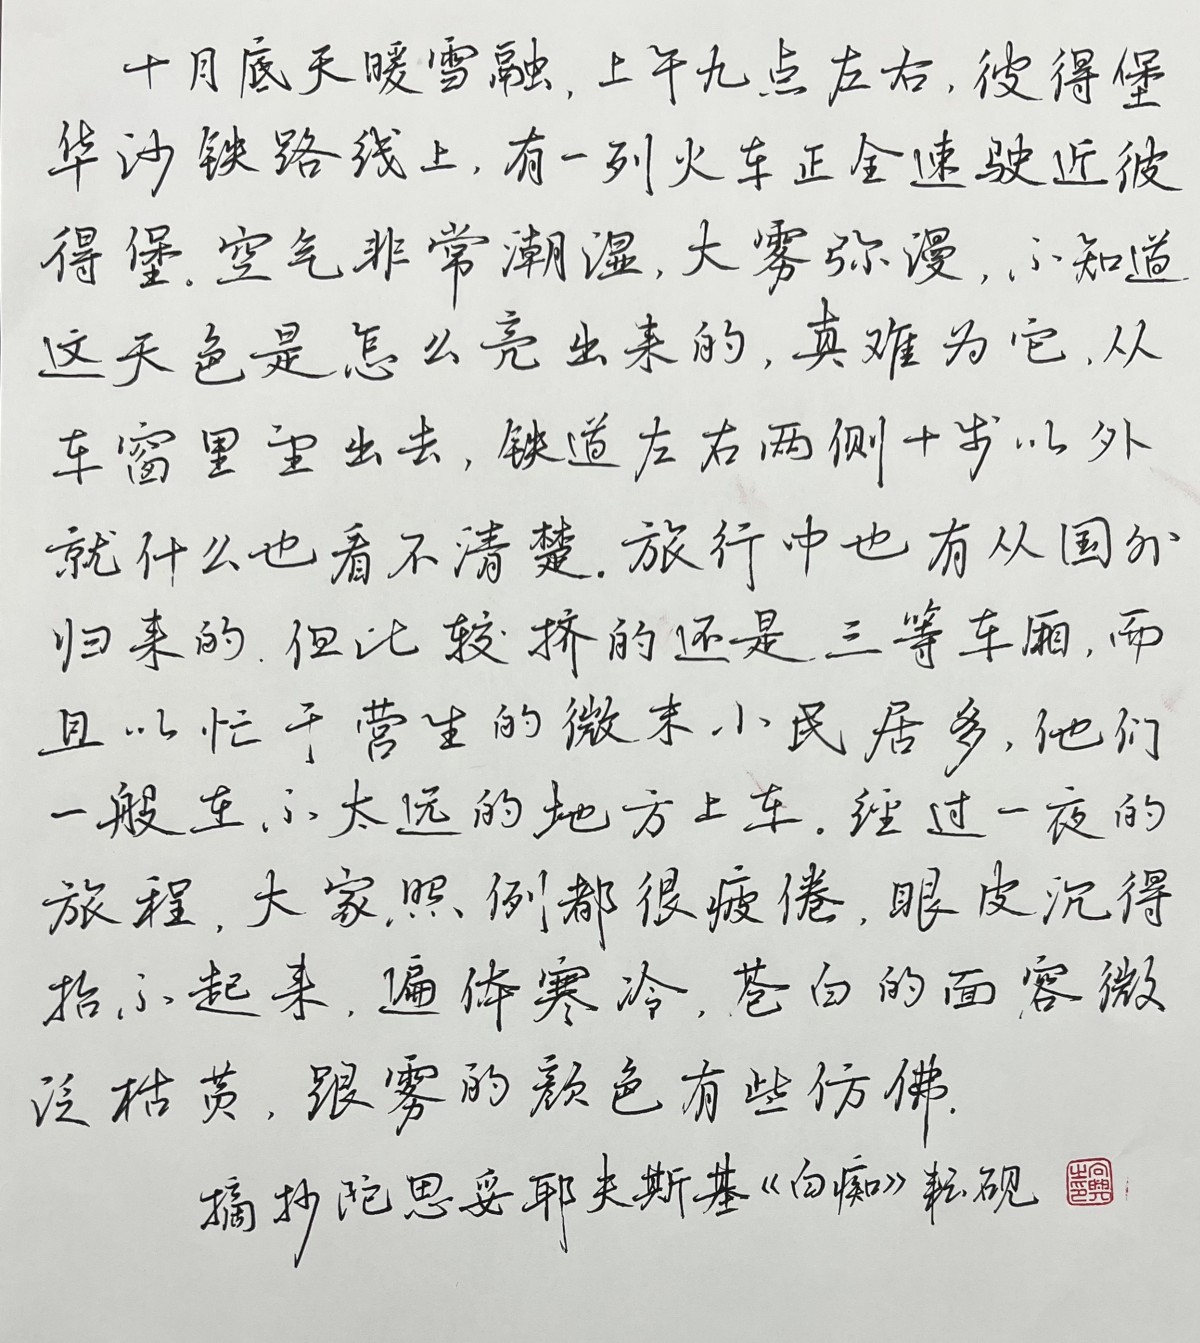 十月底天暖雪融，上午九点左右，彼得堡
华沙铁路线上，有一列火车正全速驶近彼
得堡。空气非常潮湿，大雾弥漫，不知道
这天色是怎么亮出来的，真难为它，从
车窗里望出去，铁道左右两侧十步以外
就什么也看不清楚。旅行中也有从国外
归来的．但比较挤的还是三等车厢，而
且以忙于营生的微末小民居多，他们
一般在不太远的地方上车。经过一夜的
旅程，大家照例都很疲倦，眼皮沉得
抬不起来，遍体寒冷，苍白的面容微
泛枯黄，跟雾的颜色有些仿佛．
摘抄陀思妥耶夫斯基《白痴》耘砚